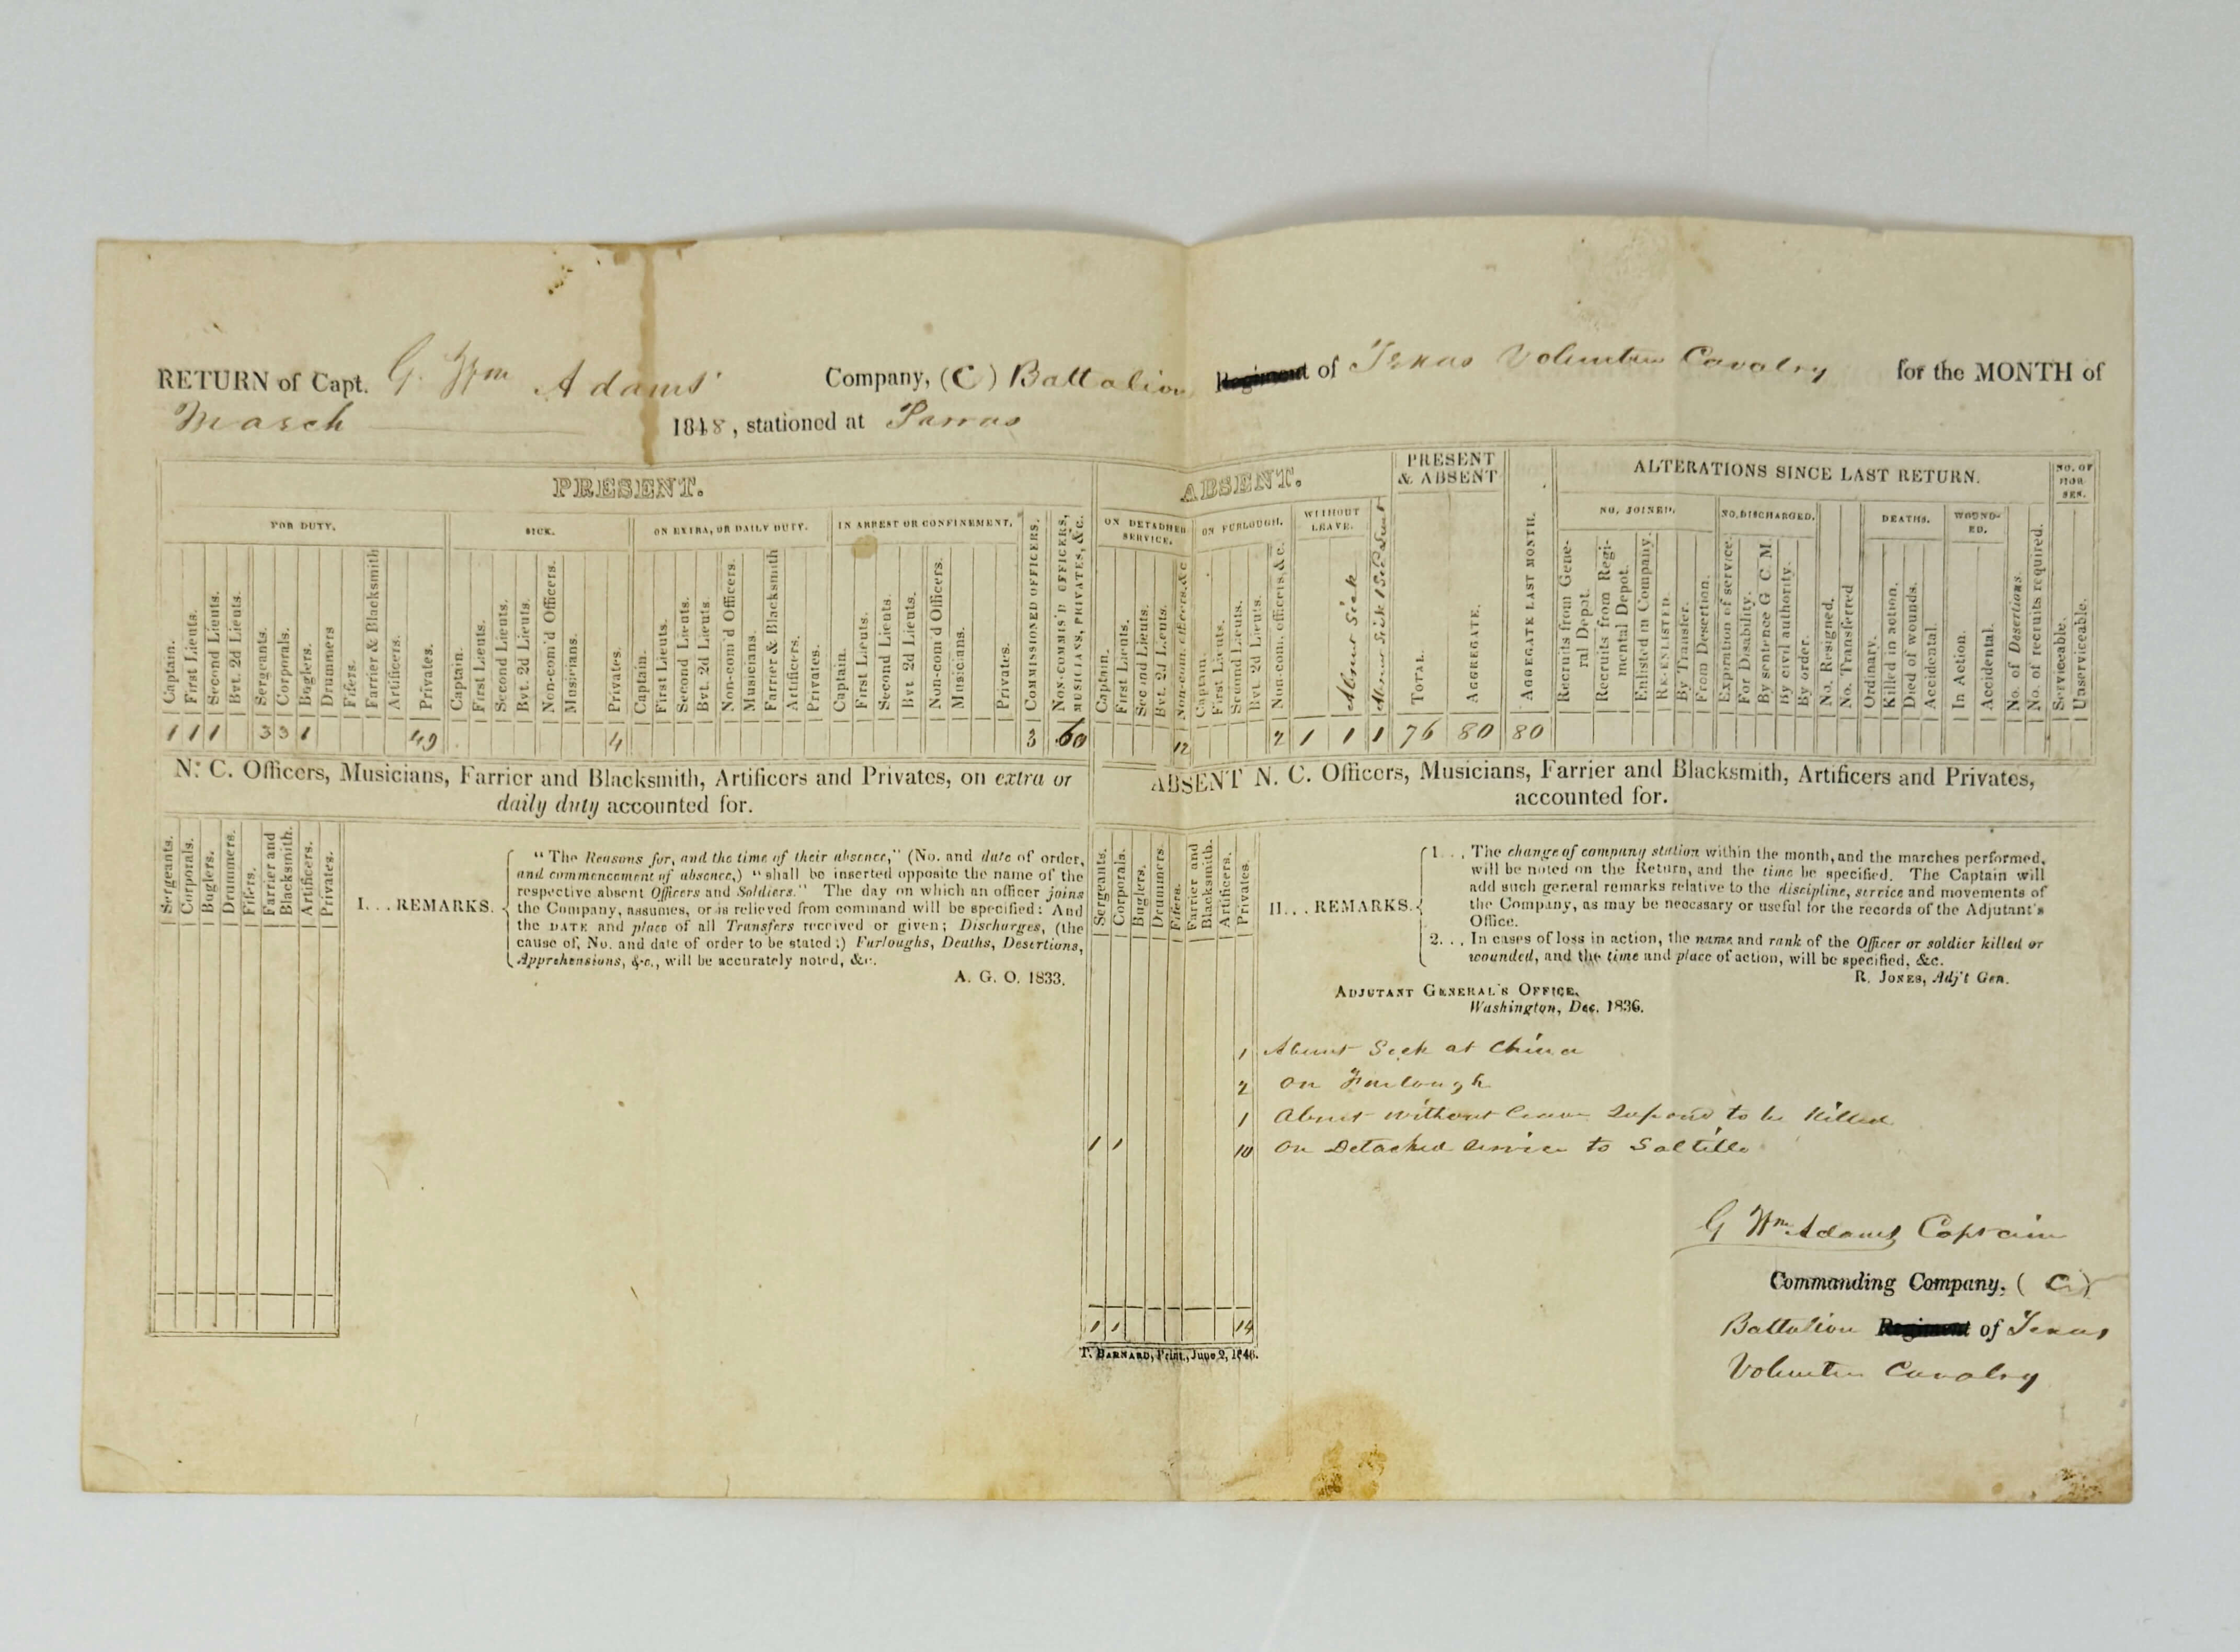 RETURN of Capt. G. Wm Adams' Company, (C) Battalion Regiment of Texas Volunteer Cavalry for the MONTH of
March 1848, stationed at Parras
PRESENT.
ABSENT.
PRESENT & ABSENT
ALTERATIONS SINCE LAST RETURN.
NO. OF HORSES.
FOR DUTY.
SICK.
ON EXTRA, OR DAILY DUTY.
IN ARREST OR CONFINEMENT.
ON DETACHED SERVICE.
ON FURLOUGH.
WITHOUT LEAVE.
NO. JOINED.
NO. DISCHARGED.
DEATHS.
WOUND-
ED.
Captain.
First Lieuts.
Second Lieuts.
Bvt. 2d Lieuts.
Sergeants.
Corporals.
Buglers.
Drummers
Fifers.
Farrier & Blacksmith
Artificers.
Privates.
Captain.
First Lieuts.
Second Lieuts.
Bvt. 2d Lieuts.
Non-com'd Officers.
Musicians.
Privates.
Captain.
First Lieuts.
Second Lieuts.
Bvt. 2d Lieuts.
Non-com'd Officers.
Musicians.
Farrier & Blacksmith
Artificers.
Privates.
Captain.
First Lieuts.
Second Lieuts.
Bvt 2d Lieuts.
Non-com'd Officers.
Musicians.
Privates.
COMMISSIONED OFFICERS.
NON-COMMIS'D OFFICERS,
MUSICIANS, PRIVATES, &c.
Captain.
First Lieuts.
Second Lieuts.
Bvt. 2d Lieuts.
Non-com. officers, &c
Captain.
First Lieuts.
Second Lieuts.
Bvt. 2d Lieuts.
Non-com. officers, &c.
Absent Sick
Absent Sick 1 Sec Lieut
TOTAL.
AGGREGATE.
AGGREGATE LAST MONTH.
Recruits from Gene-
ral Depot.
Recruits from Regi-
mental Depot.
Enlisted in Company.
RE-ENLISTED.
By Transfer.
From Desertion.
Expiration of service.
For Disability.
By sentence G C M.
By civil authority.
By order.
No. Resigned.
No. Transferred
Ordinary.
Killed in action.
Died of wounds.
Accidental.
In Action.
Accidental.
No. of Desertions.
No. of recruits required.
Serviceable.
Unserviceable.
1 1 1 3 3 1 49 4 3 60 12 2 1 1 1 76 80 80
N. C. Officers, Musicians, Farrier and Blacksmith, Artificers and Privates, on extra or
daily duty accounted for.
ABSENT N. C. Officers, Musicians, Farrier and Blacksmith, Artificers and Privates,
accounted for.
Sergeants.
Corporals.
Buglers.
Drummers.
Fifers.
Farrier and
Blacksmith.
Artificers.
Privates.
I... REMARKS.
"The Reasons for, and the time of their absence," (No. and date of order,
and commencement of absence,) "shall be inserted opposite the name of the
respective absent Officers and Soldiers." The day on which an officer joins
the Company, assumes, or is relieved from command will be specified: And
the DATE and place of all Transfers received or given; Discharges, (the
cause of, No. and date of order to be stated;) Furloughs, Deaths, Desertions,
Apprehensions, &c., will be accurately noted, &c.
A. G. O. 1833.
Sergeants.
Corporals.
Buglers.
Drummers.
Fifers.
Farrier and
Blacksmith.
Artificers.
Privates.
II... REMARKS.
1... The change of company station within the month, and the marches performed,
will be noted on the Return, and the time be specified. The Captain will
add such general remarks relative to the discipline, service and movements of
the Company, as may be necessary or useful for the records of the Adjutant's
Office.
2... In cases of loss in action, the name and rank of the Officer or soldier killed or
wounded, and the time and place of action, will be specified, &c.
R. JONES, Adj't Gen.
ADJUTANT GENERAL'S OFFICE,
Washington, Dec. 1836.
1 Absent Sick at China
2 On Furlough
1 Absent without leave Suposed to be Killed
1 1 10 On Detached Service to Saltillo
1 1 14
G Wm Adams Captain
Commanding Company, (C)
Battalion Regiment of Texas
Volunteer Cavalry
T. BARNARD, Print., June 2, 1846.